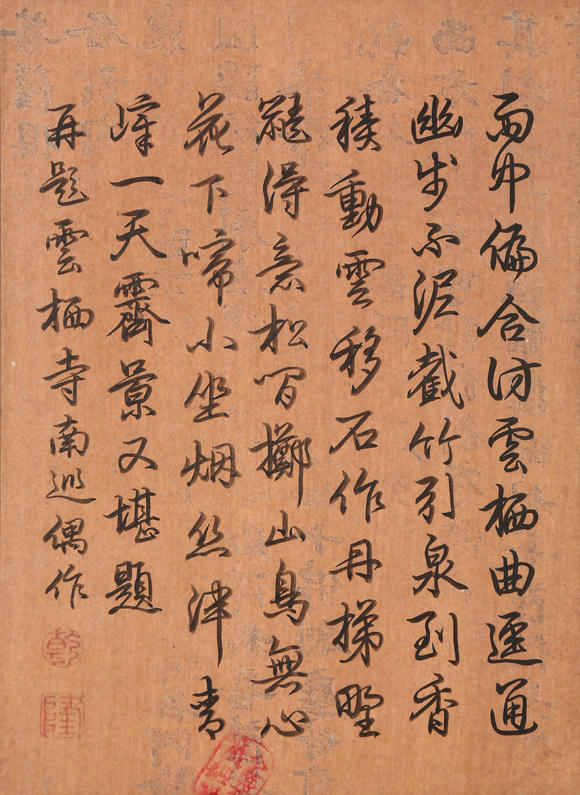 雨中偏合訪雲栖曲逕通
幽步不泥截竹引泉到香
積動雲移石作丹梯野
鼯得意松間擲山鳥無心
花下啼小坐烟青
嶂一天霽景又堪題
再題雲栖寺南巡偶作
乾
隆